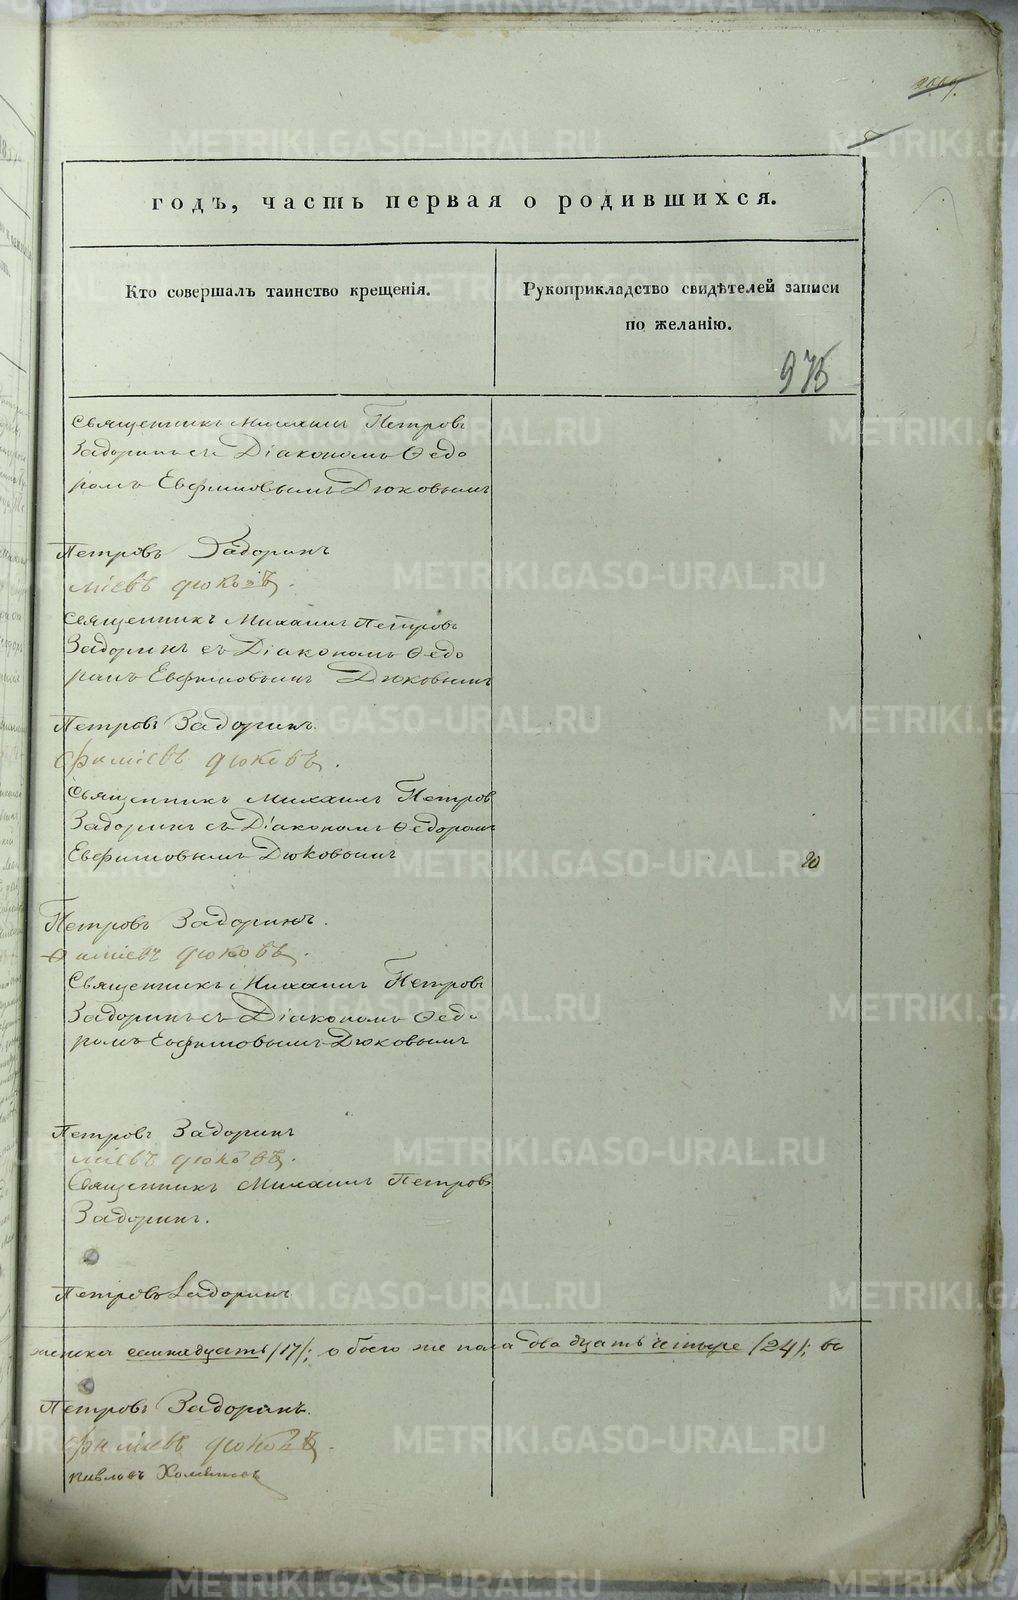 годъ, часть первая о родившихся.
Кто совершалъ таинство крещенія.
Рукоприкладство свидѣтелей записи
по желанію.
975
Священникъ Михаилъ Петровъ
Задоринъ съ Діакономъ Ѳедо
ромъ Евфимовымъ Дюковымъ
Петровъ Задоринъ
міевъ Дюковъ.
Священникъ Михаилъ Петровъ
Задоринъ съ Діакономъ Ѳедо
ромъ Евфимовымъ Дюковымъ
Петровъ Задоринъ.
фиміевъ Дюковъ.
Священникъ Михаилъ Петров
Задоринъ съ Діакономъ Ѳедоромъ
Евфимовымъ Дюковымъ
20
Петровъ Задоринъ.
фиміевъ Дюковъ.
Священникъ Михаилъ Петровъ
Задоринъ съ Діакономъ Ѳедо
ромъ Евфимовымъ Дюковымъ
Петровъ Задоринъ
міевъ Дюковъ.
Священникъ Михаилъ Петровъ
Задоринъ.
Петровъ Задоринъ
женска семнадцать /17/; обоего же пола двадцать четыре /24/; во
Петровъ Задоринъ.
фиміевъ Дюковъ.
Павловъ
METRIKI.GASO-URAL.RU